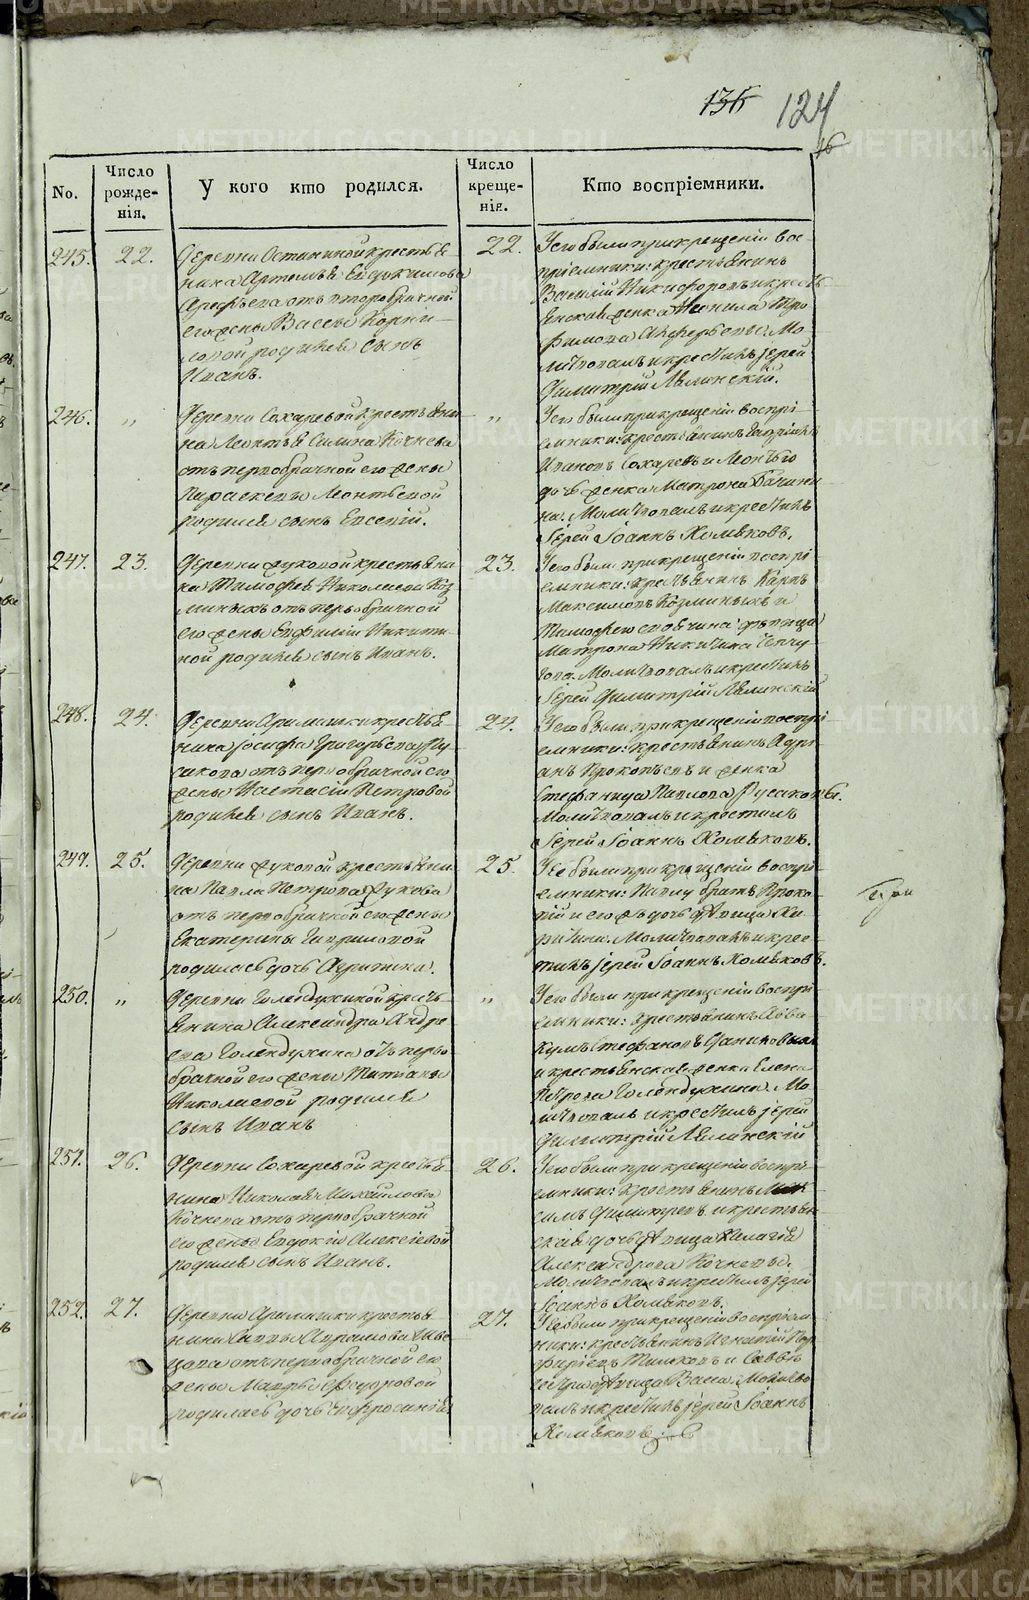 136 124
No.
Число рожде-нія.
У кого кто родился.
Число креще-нія.
Кто воспріемники.
245. 22.
Деревни Останиной крестья
нина Артемья Евдокимова
Арефьева отъ второбрачной
его жены Вассы Корни-
ловой родился сынъ
Иванъ.
22.
У его были при крещеніи вос-
пріемники: крестьянинъ
Василій Никифоровъ и кресть
янская женка Неонила Тро
фимова Алферьевы. Мо
литвовалъ и крестилъ іерей
Димитрій Ляпинскій.
246. „
Деревни Сохаревой крестьяни
на Леонтья Силина Кочнева
отъ первобрачной его жены
Параскевы Леонтьевой
родился сынъ Евсевій.
„
У его были при крещеніи воспрі-
емники: крестьянинъ
Ивановъ Сохаревъ и
женка Матрона
Молитвовалъ и крестилъ
іерей Іоаннъ Хомяковъ.
247. 23.
Деревни Жуковой крестьяни
на Тимофея Николаева Коз
миныхъ отъ первобрачной
его жены Евфиміи Никити-
ной родился сынъ Иванъ.
23.
У его были при крещеніи воспрі
емники: крестьянинъ Карпъ
Максимовъ Козминыхъ и
дѣвица
Матрона Никитина
Молитвовалъ и крестилъ
іерей Димитрій Ляпинскій
248. 24.
Деревни Арамашки крестья-
нина Іосифа Григорьева Ру
сакова отъ первобрачной его
жены Настасіи Петровой
родился сынъ Иванъ.
24.
У его были при крещеніи воспрі
емники: крестьянинъ Адрі
анъ Прокопьевъ и женка
Стефанида Павлова Русаковы.
Молитвовалъ и крестилъ
іерей Іоаннъ Хомяковъ.
249. 25.
Деревни Жуковой крестьяни
на Павла Петрова Жукова
отъ первобрачной его жены
Екатерины Гавриловой
родилась дочь
25.
У ее были при крещеніи воспрі
емники: Павлу братъ Проко
пій и его дочь дѣвица
Молитвовалъ и крес-
тилъ іерей Іоаннъ Хомяковъ.
250. „
Деревни Голендухиной кресть-
янина Александра Андре
ева Голендухина отъ перво
брачной его жены Татіаны
Николаевой родился
сынъ Иванъ
„
У его были при крещеніи воспрі
емники: крестьянинъ Авва
кумъ Стефановъ
и крестьянская женка Елена
Петрова Голендухина. Мо
литвовалъ и крестилъ іерей
Димитрій Ляпинскій
251. 26.
Деревни Сохаревой крестья
нина Николая Михайлова
Кочнева отъ первобрачной
его жены Евдокіи Алексіевой
родился сынъ Иванъ.
26.
У его были при крещеніи воспрі-
емники: крестьянинъ Мак
симъ Димитріевъ и крестьян
ская дочь дѣвица Пелагія
Александрова Кочневы.
Молитвовалъ и крестилъ іерей
Іоаннъ Хомяковъ.
252. 27.
Деревни Арамашки крестья
нина Саввы Абрамова Шве
цова отъ первобрачной его
жены Марѳы Федоровой
родилась дочь Евфросинія
27.
У ее были при крещеніи воспріем
ники: крестьянинъ Игнатій Пор
фирьевъ и Саввы
сестра дѣвица Васса. Молитво
валъ и крестилъ іерей Іоаннъ
Хомяковъ